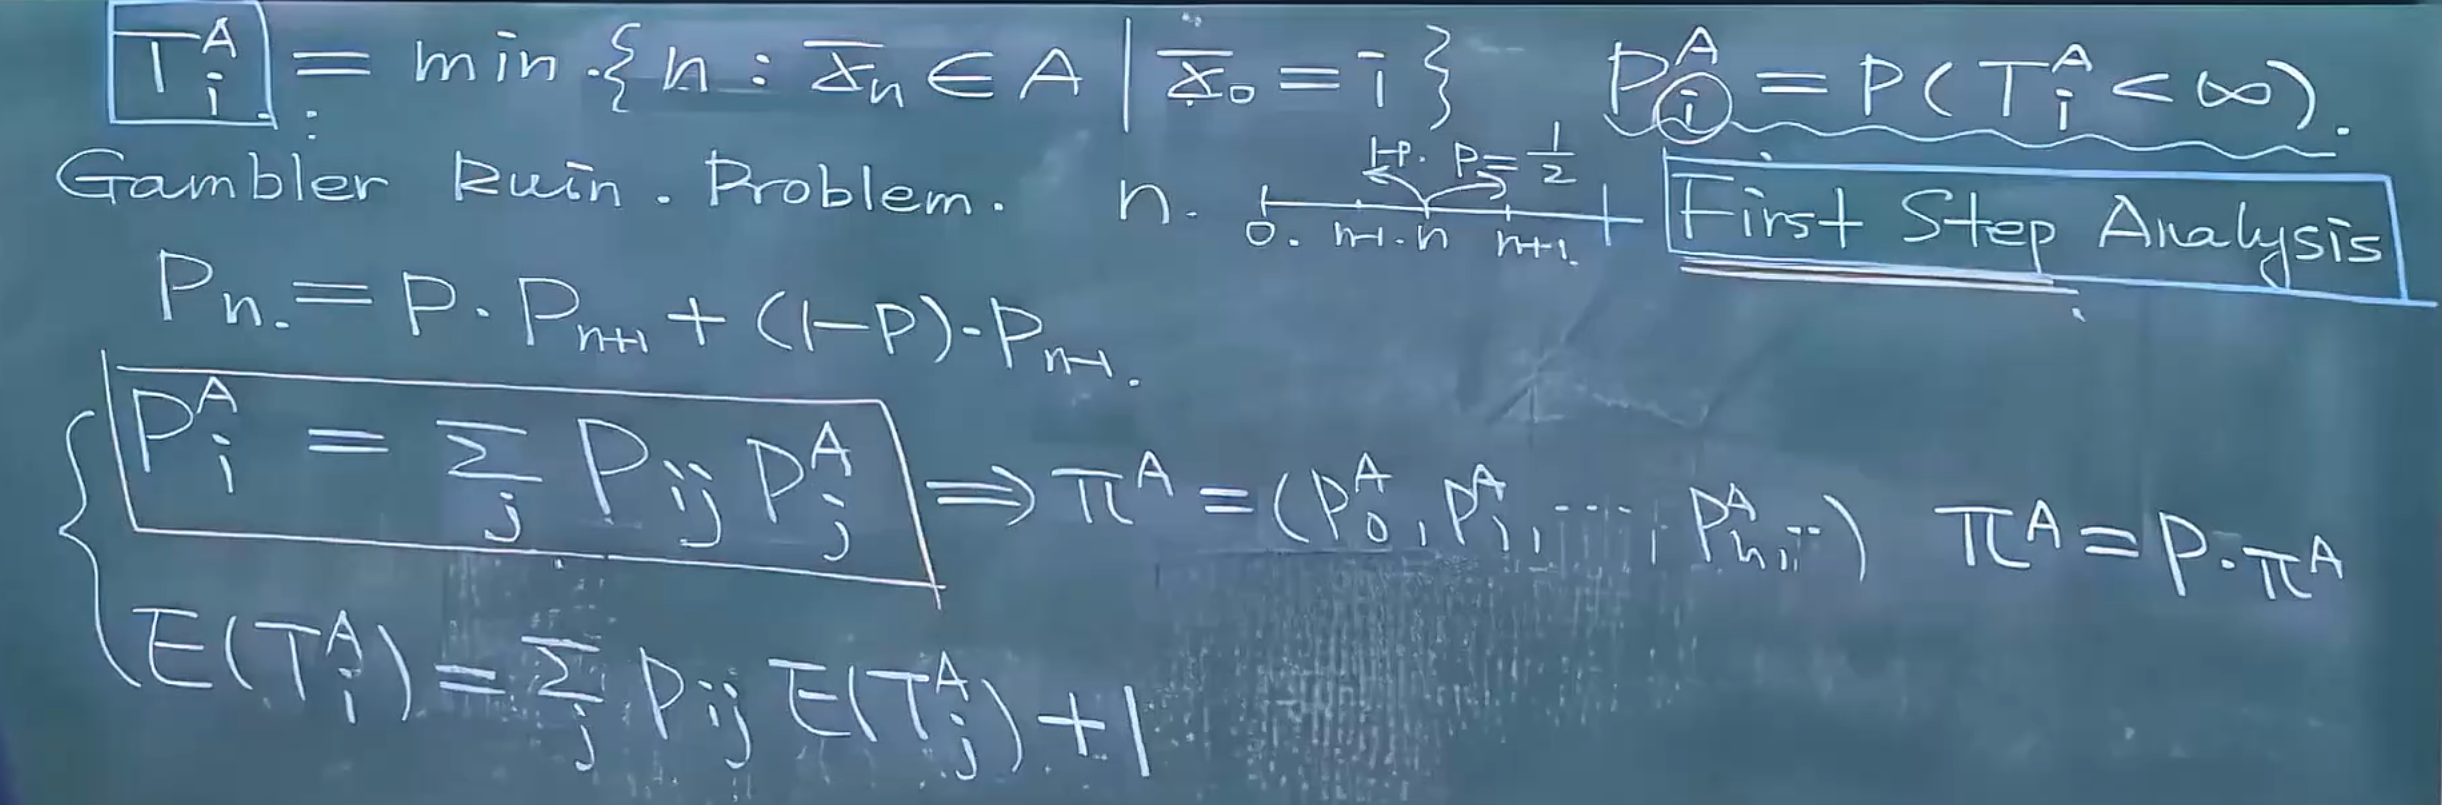 T_i^A = min{n : X_n ∈ A | X_0 = i} P_i^A = P(T_i^A < ∞).
Gambler Ruin. Problem. n. 0. n-1. n n+1. 1-p. p = 1/2 First Step Analysis
P_n. = P · P_{n+1} + (1-P) · P_{n-1}.
P_i^A = Σ_j P_{ij} P_j^A ⇒ π^A = (P_0^A, P_1^A, ..., P_n^A, ...) π^A = P · π^A
E(T_i^A) = Σ_j P_{ij} E(T_j^A) + 1